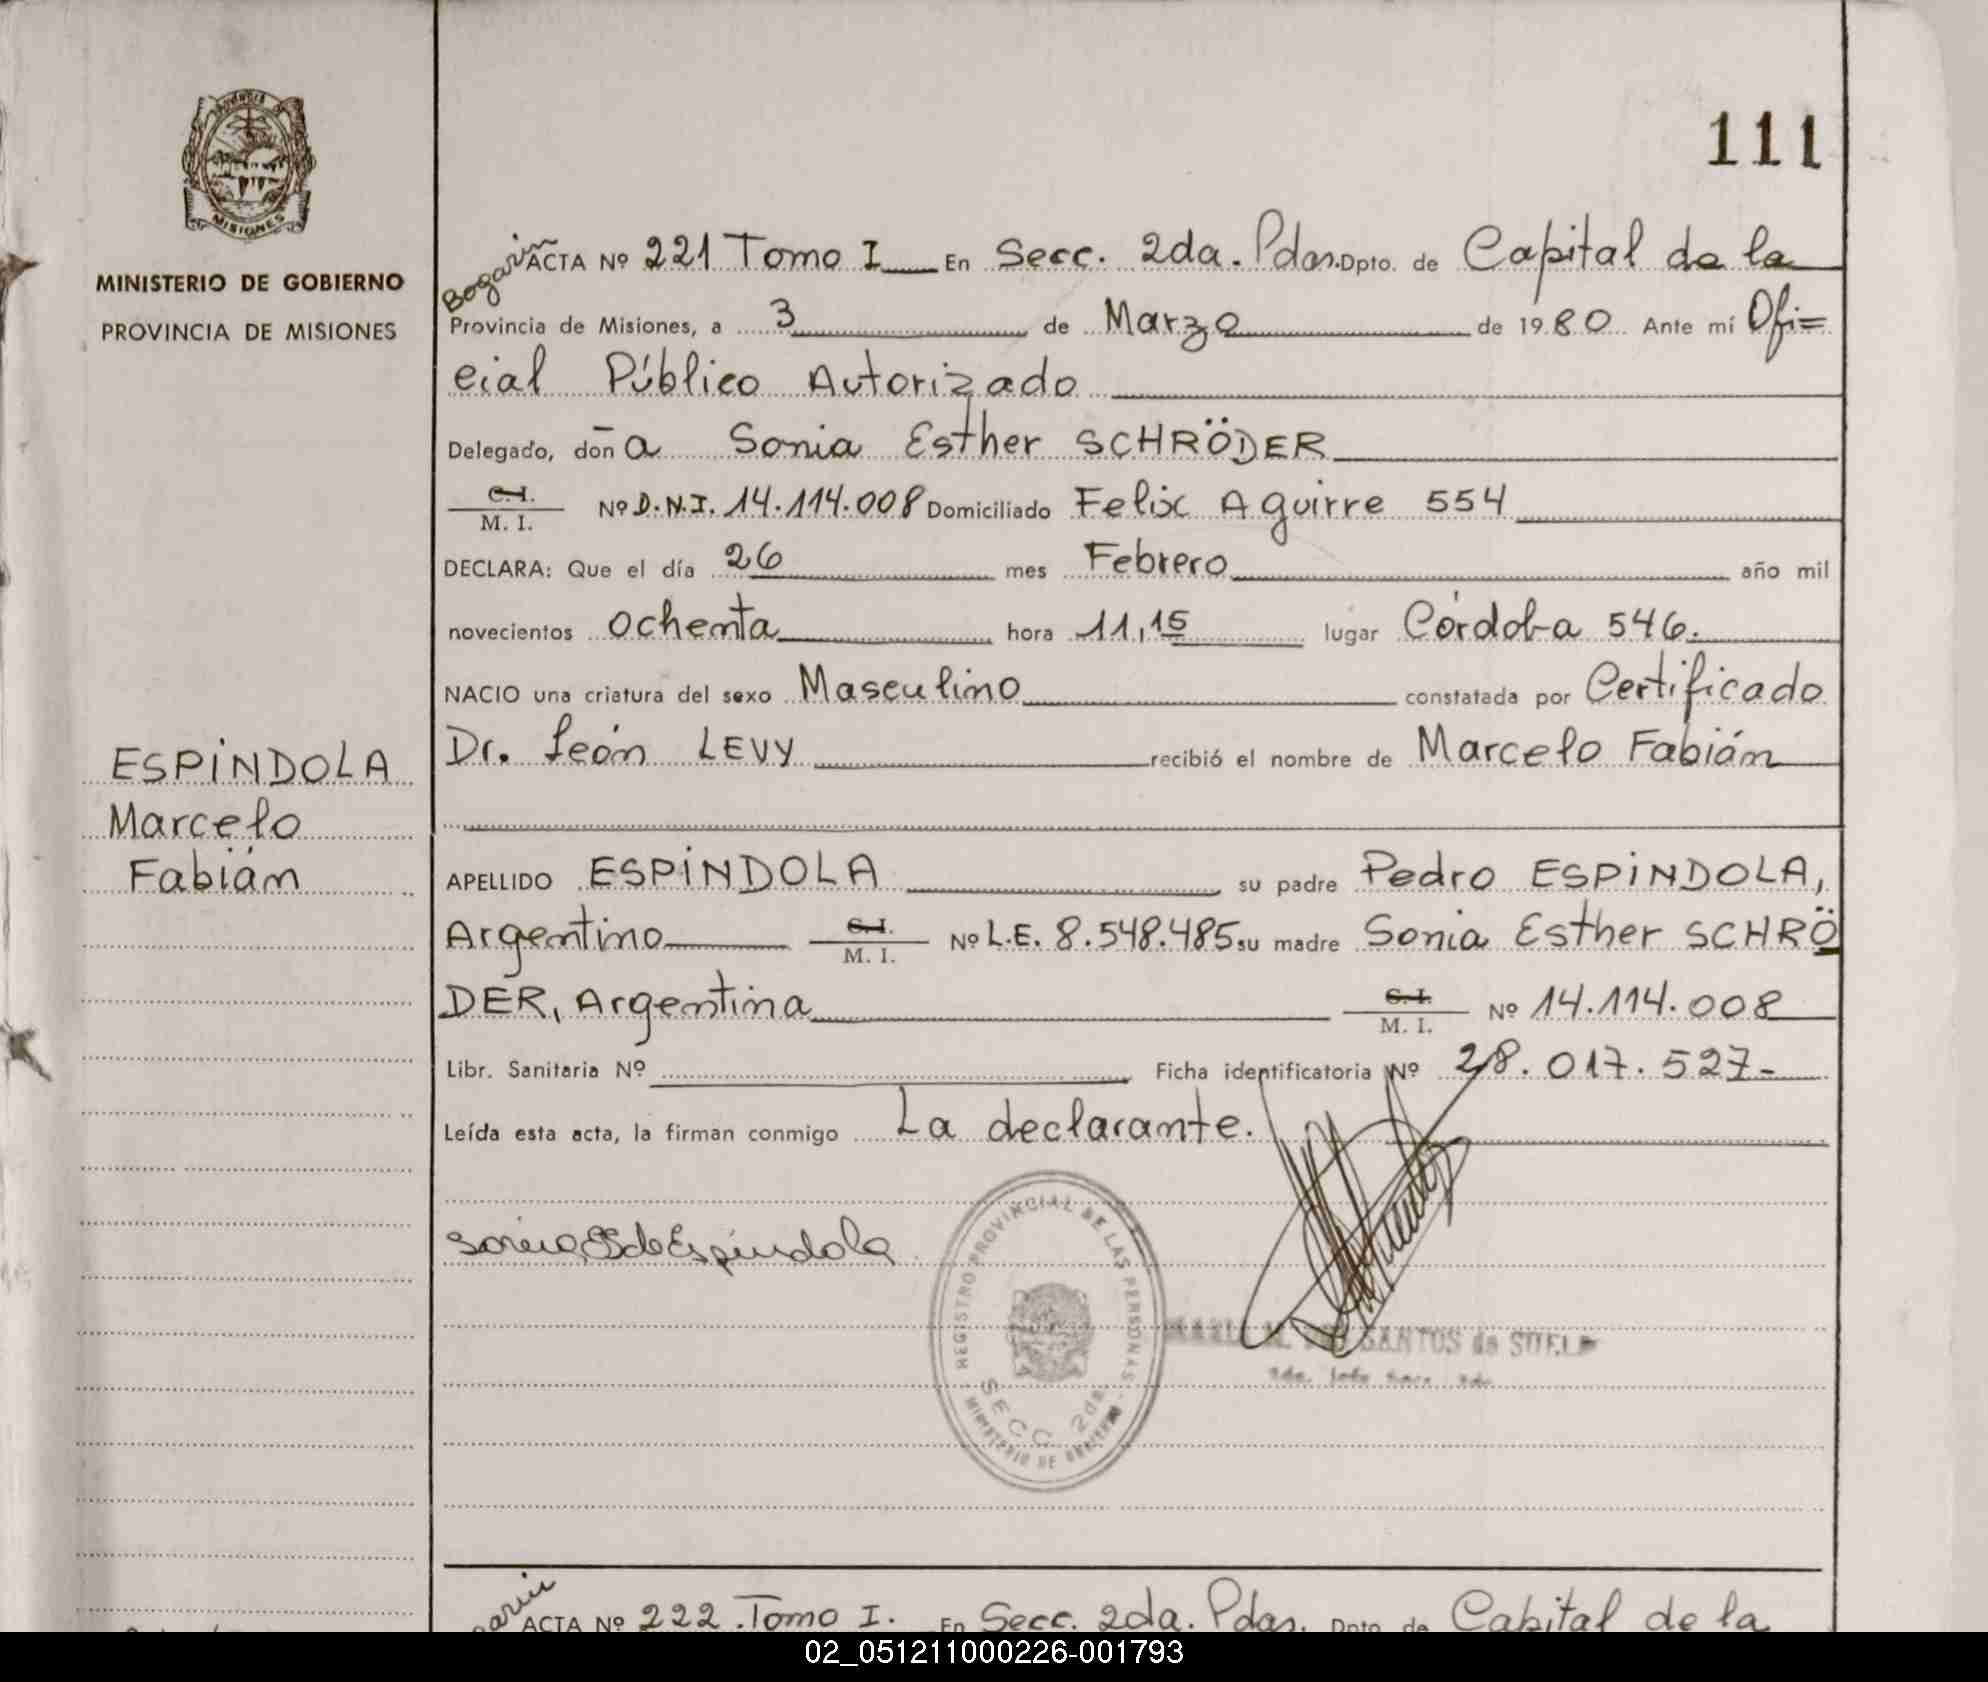 PROVINCIA DE
MISIONES
MINISTERIO DE GOBIERNO
PROVINCIA DE MISIONES
111
Bogarin
ACTA Nº 221 Tomo I En Secc. 2da. Pdas. Dpto. de Capital de la
Provincia de Misiones, a 3 de Marzo de 1980 Ante mí Ofi=
cial Público Autorizado
Delegado, doña Sonia Esther SCHRÖDER
C.I.
M. I. Nº D.N.I. 14.114.008 Domiciliado Felix Aguirre 554
DECLARA: Que el día 26 mes Febrero año mil
novecientos ochenta hora 11,15 lugar Córdoba 546.
NACIO una criatura del sexo Masculino constatada por Certificado
Dr. León LEVY recibió el nombre de Marcelo Fabián
ESPINDOLA
Marcelo
Fabián
APELLIDO ESPINDOLA su padre Pedro ESPINDOLA,
Argentino C.I.
M. I. Nº L.E. 8.548.485 su madre Sonia Esther SCHRÖ
DER, Argentina C.I.
M. I. Nº 14.114.008
Libr. Sanitaria Nº Ficha identificatoria Nº 28.017.527-
Leída esta acta, la firman conmigo La declarante.
Sonia ES de Espindola
REGISTRO PROVINCIAL DE LAS PERSONAS
SECC. 2da
MINISTERIO DE GOBIERNO
SANTOS de
ACTA Nº 222 Tomo I. En Secc. 2da. Pdas. Dpto. de Capital de la
02_051211000226-001793